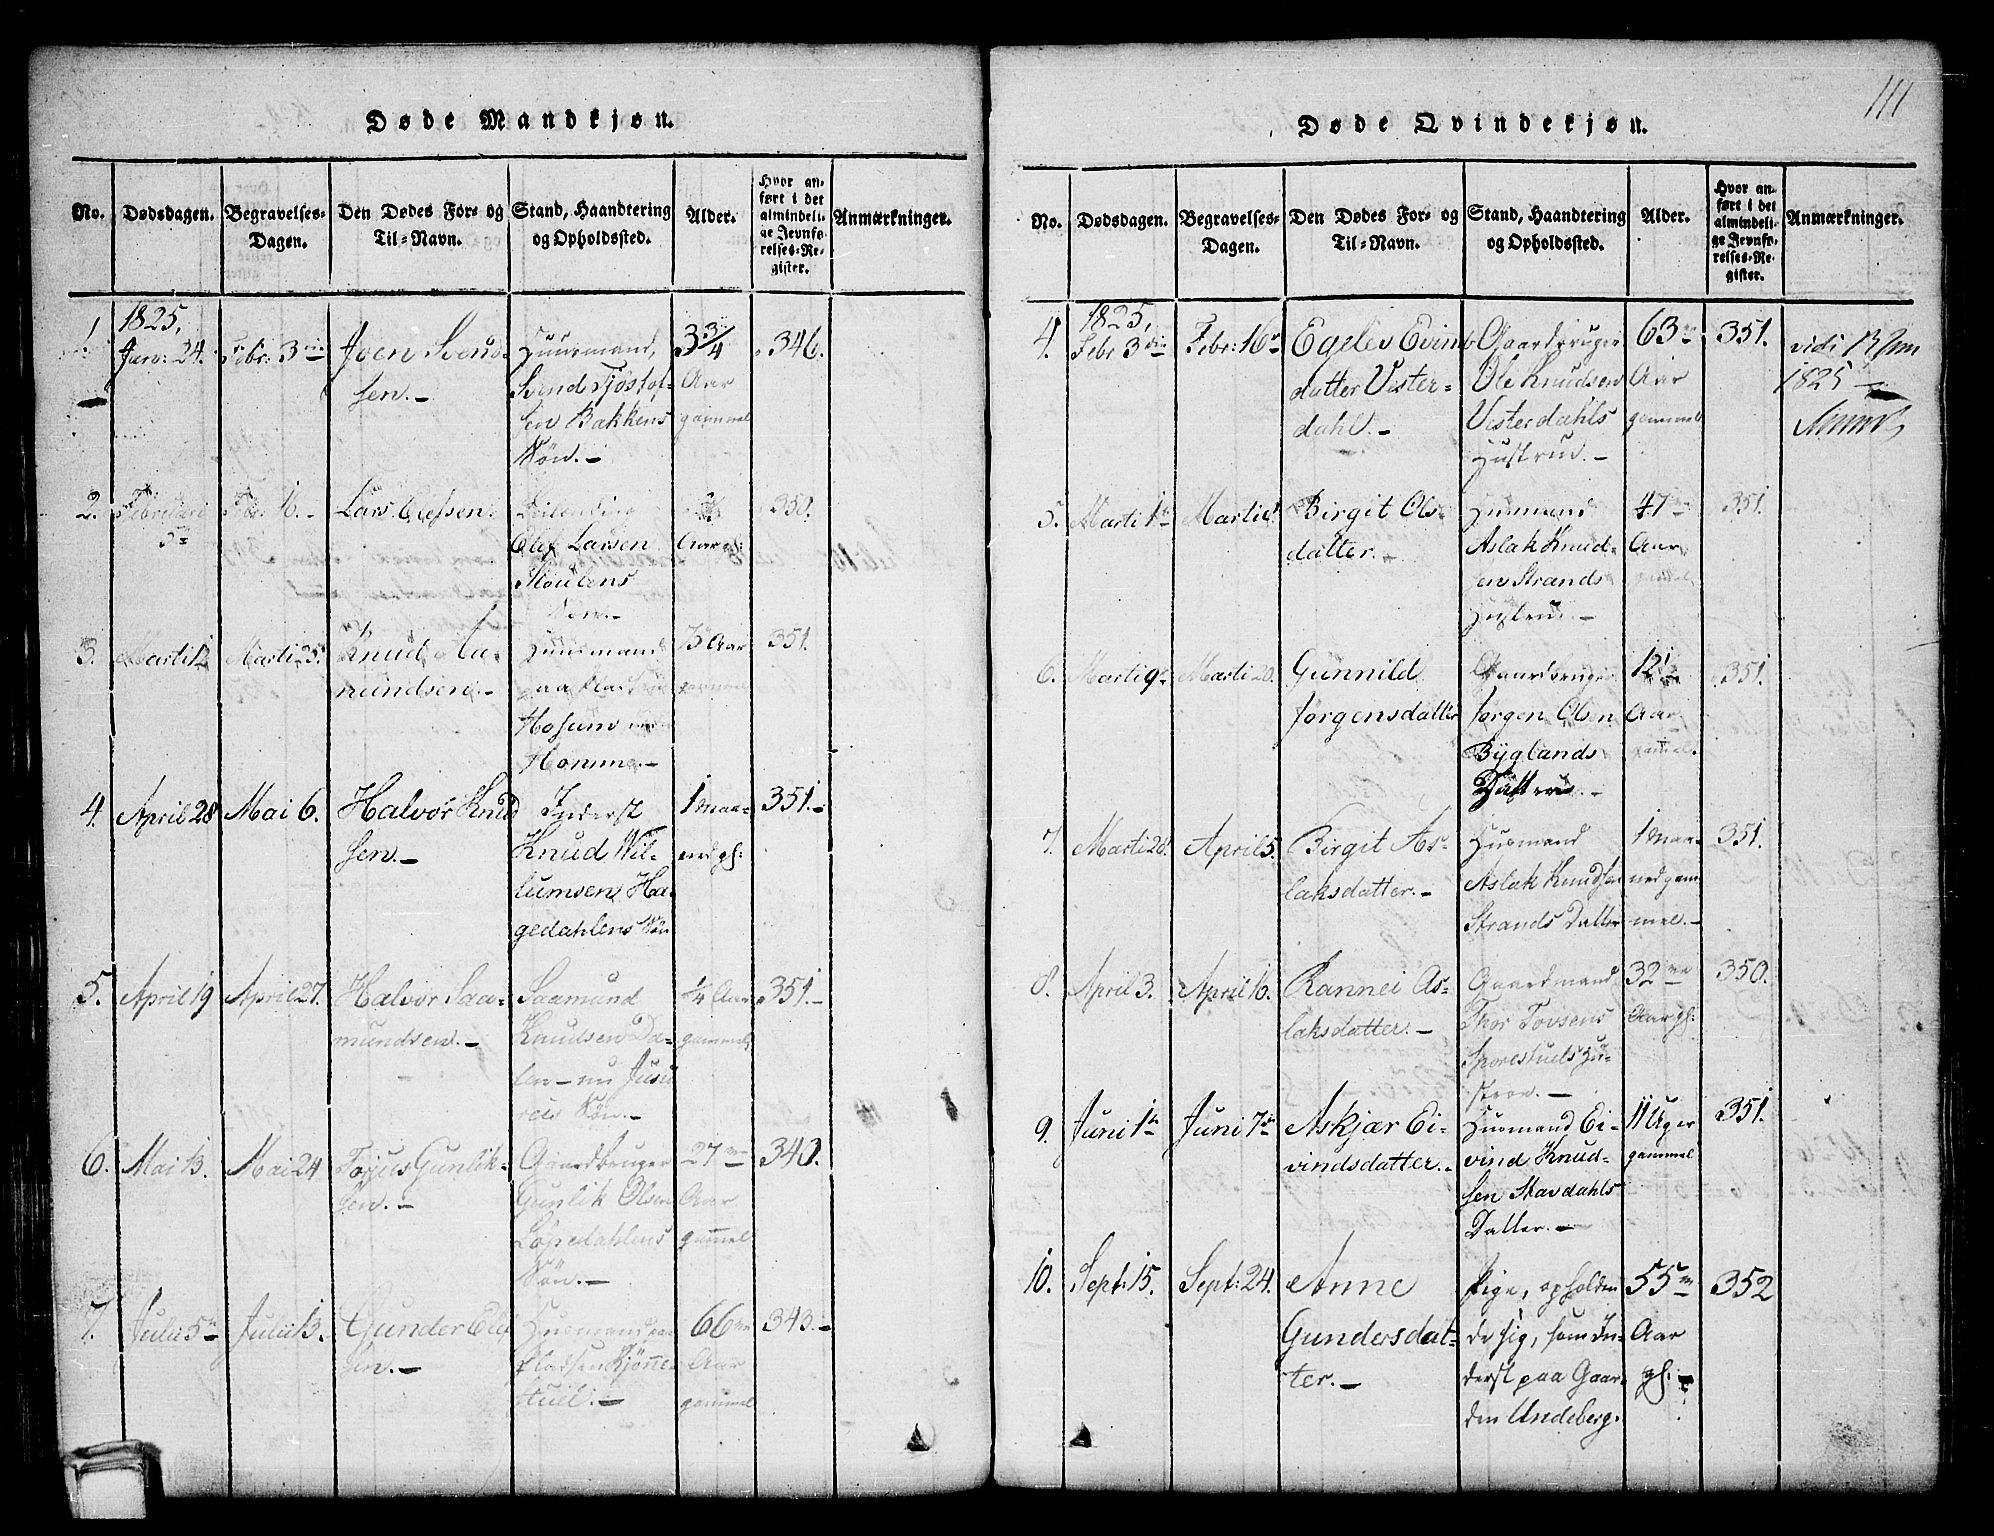 111
Døde Mandkjøn.
No.
Dødsdagen.
Begravelses-
Dagen.
Den Dødes For- og
Til-Navn.
Stand, Haandtering
og Opholdssted.
Alder.
Hvor an-
ført i det
almindeli-
ge Jevnfø-
relses-Re-
gister.
Anmærkninger.
1825,
1.
Janr: 24.
Febr: 3
Joen Svend-
sen.-
Huusmand,
Svend Tjøstol-
sen Bakkens
Søn.-
3 3/4
Aar
gammel
346.
2.
Februari
5
Feb: 16.-
Lars Olefsen.
Olef Larsen
Støulens
Søn.-
Aar gl:
350.
3.
Marti 12
Marti 25
Knud Aa-
mundsen.-
Huusmand
paa Pladsen
Mosum
Homme.-
75 Aar
gammel
351.
4.
April 28
Mai 6.
Halvor Knud
sen.-
Inderst
Knud Wil-
lumsen Ha-
gedahlens Søn
1 Maa-
ned gl:
351.-
5.
April 19
April 27.
Halvor Saa-
mundsen.-
Saamund
Knudsen Da-
len - nu Jusu
reis Søn.-
1/4 Aar
gammel
351.-
6.
Mai 13.
Mai 24
Tojus Gunlik-
sen.-
Gaardbruger
Gunlik Olsen
Løpedahlens
Søn.-
27
Aar
gammel
340.
7.
Julii 5
Julii 13.
Gunder Olef
sen.-
Huusmand paa
Pladsen Kjønne-
tuel.-
66
Aar
gammel
343.-
Døde Qvindekjøn.
No.
Dødsdagen.
Begravelses-
Dagen.
Den Dødes For- og
Til-Navn.
Stand, Haandtering
og Opholdssted.
Alder.
Hvor an-
ført i det
almindeli-
ge Jevnfø-
relses-Re-
gister.
Anmærkninger.
1825,
4.
Febr 3
Febr: 16
Egelev Evind
datter Vester-
dahl.-
Gaardbruger
Ole Knudsen
Vesterdahls
Hustrue.-
63
Aar
gammel
351.
vidi
1825
5.
Marti 1
Marti
Birgit Ols-
datter.-
Husmand
Aslak Knud-
sen Strands
Hustrue.-
47
Aar
gammel
351.
6.
Marti 9
Marti 20.
Gunnild
Jørgensdatter
Gaardbruger
Jørgen Olsen
Byglands
Datter.-
12
Aar
gammel.
351.
7.
Marti 28
April 5.
Birgit As-
laksdatter.-
Husmand
Aslak Knudsen
Strands Datter
1 Maa-
ned gam-
mel.-
351.
8.
April 3.
April 16.
Rannei As-
laksdatter.-
Gaardmand
Thor Tovsens
Sporestuels Hu-
strue.-
32
Aar gl:
350.
9.
Juni 1
Juni 7
Askjær Ei-
vindsdatter.-
Husmand Ei-
vind Knud-
sen Stavdahls
Datter.-
11 Uger
gammel
351.
10.
Sept: 15.
Sept: 24.
Anne
Gundersdat-
ter.-
Pige, opholden
de sig, som In-
derst paa Gaar-
den Undeberg.
55
Aar
gl:-
352